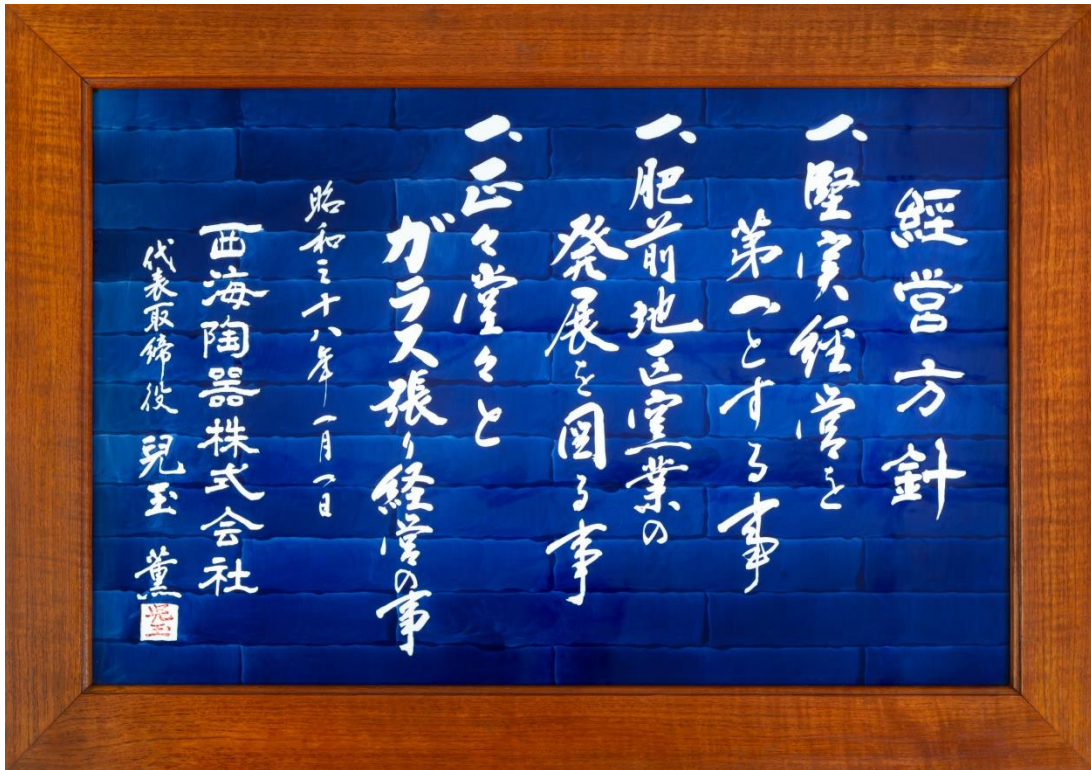 經営方針
一、堅実経営を
第一とする事
一、肥前地区窯業の
発展を図る事
一、正々堂々と
ガラス張り経営の事
昭和三十八年一月一日
西海陶器株式会社
代表取締役 兒玉 薫
兒玉